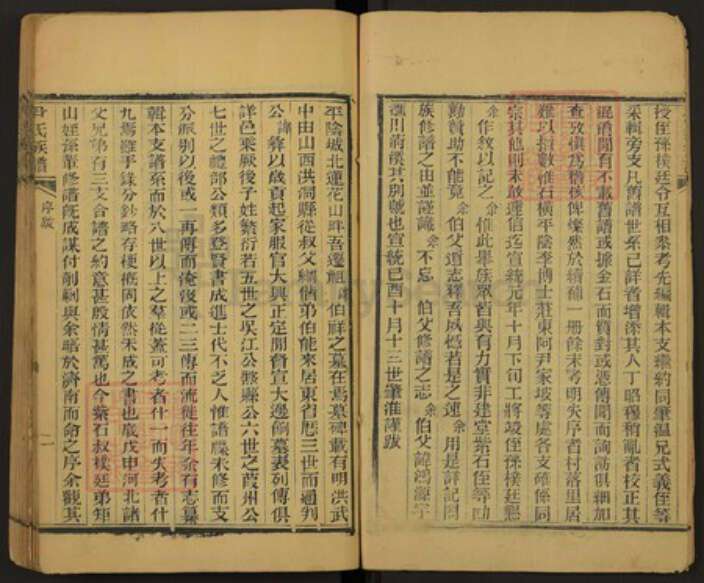 授侄孫樸廷令互相參考先編輯本支繼約同肇溫兄式義侄等
采輯旁支凡舊譜世系已詳者增添其人丁昭穆稍亂者校正其
混淆間有不載舊譜或據金石而質對或憑傳聞而詢洵俱細加
查攷慎爲稽核俾燦然於續補一冊餘未考明失序者村落里居
難以指數惟石橫平陰李博士莊東阿尹家坡等處各支確係同
宗其他則未敢遽信迄宣統元年十月下旬工將竣侄孫樸廷懇
余作敘以記之余惟此舉族眾皆與有力實非建堂紫石侄等助
勷贊助不能竟余伯父遺志釋吾戚慼者是之運余用是詳記闔
族修譜之由並謹識余不忘伯父修譜之志余伯父諱鴻源字
應川前溪其別號也宣統己酉十月十三世肇淮謹跋
平陰城北蓮花山畔吾遷祖諱伯祥之墓在焉墓碑載有明洪武
中由山西洪洞縣從叔父繡偕弟伯能來居東省歷三世而通判
公諱緈以歲貢起家服官大興正定閒督宣大邊餉墓表列傳俱
詳邑乘厥後子姓繁衍若五世之吳江公黟縣公六世之葭州公
七世之總部公類多登賢書成進士代不乏人惟譜牒未修而支
分派別以後或一再傳而淹沒或二三傳而流徙往年余有志纂
輯本支譜系而於八世以上之羣從蓋可考者什一而失考者什
九焉雖手錄分鈔略存梗概固依然未成之書也歲戊申河北諸
父兄弟有三支合譜之約意甚殷情甚篤也今紫石叔樸廷弟知
山姪孫輩修譜既成謀付剞劂與余晤於濟南而命之序余觀其
尹氏族譜
序跋
二